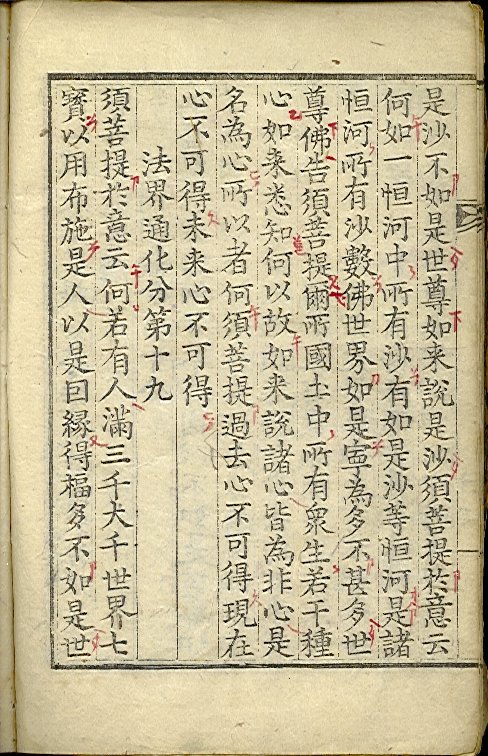 是沙不如是世尊如来說是沙須菩提於意云
何如一恒河中所有沙有如是沙等恒河是諸
恒河所有沙數佛世界如是寧為多不甚多世
尊佛告須菩提爾所國土中所有衆生若干種
心如来悉知何以故如来說諸心皆為非心是
名為心所以者何須菩提過去心不可得現在
心不可得未来心不可得
法界通化分第十九
須菩提於意云何若有人滿三千大千世界七
寳以用布施是人以是因縁得福多不如是世